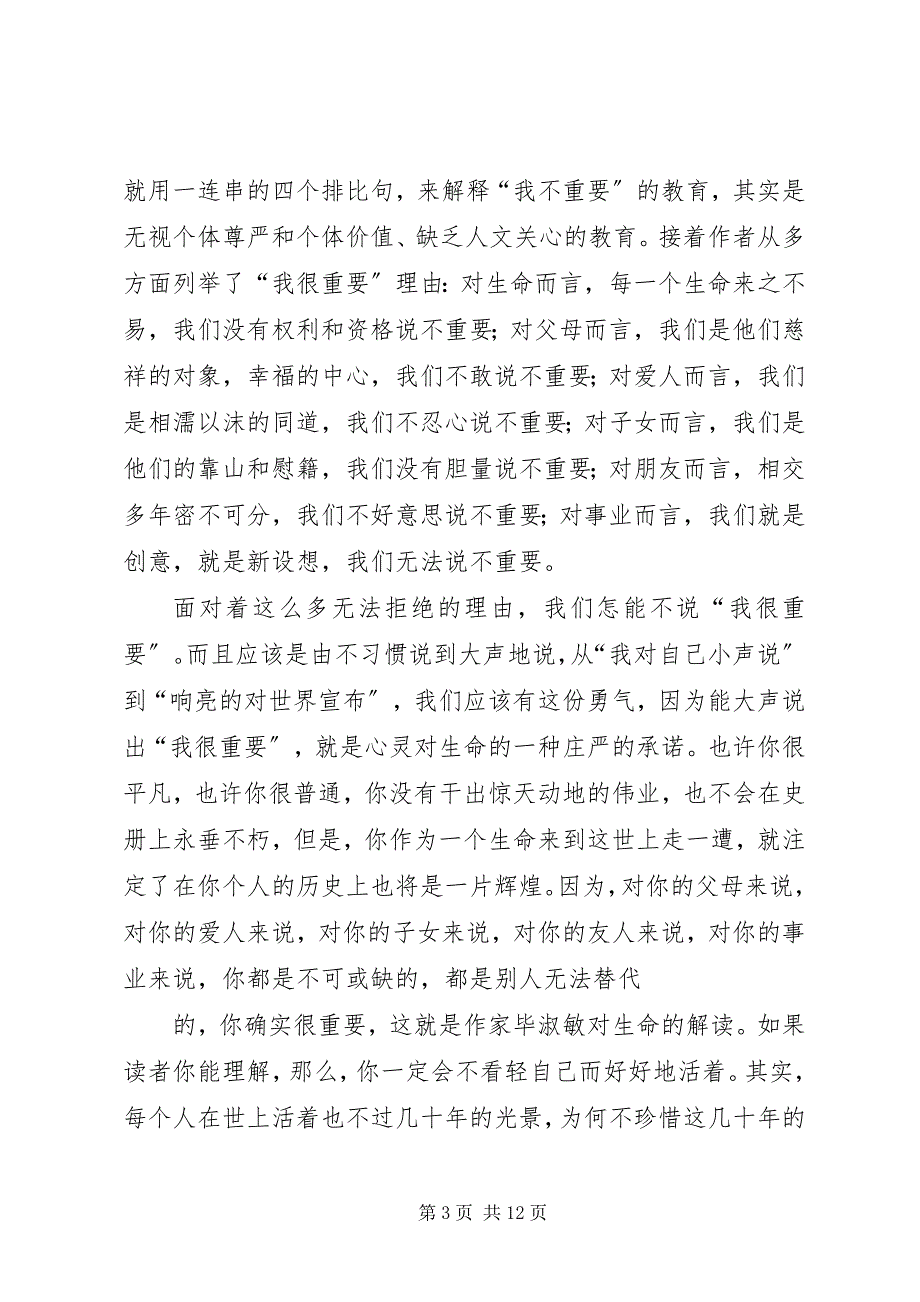 就用一连串的四个排比句，来解释“我不重要〞的教育，其实是
无视个体尊严和个体价值、缺乏人文关心的教育。接着作者从多
方面列举了“我很重要〞理由：对生命而言，每一个生命来之不
易，我们没有权利和资格说不重要；对父母而言，我们是他们慈
祥的对象，幸福的中心，我们不敢说不重要；对爱人而言，我们
是相濡以沫的同道，我们不忍心说不重要；对子女而言，我们是
他们的靠山和慰籍，我们没有胆量说不重要；对朋友而言，相交
多年密不可分，我们不好意思说不重要；对事业而言，我们就是
创意，就是新设想，我们无法说不重要。
面对着这么多无法拒绝的理由，我们怎能不说“我很重
要〞。而且应该是由不习惯说到大声地说，从“我对自己小声说〞
到“响亮的对世界宣布〞，我们应该有这份勇气，因为能大声说
出“我很重要〞，就是心灵对生命的一种庄严的承诺。也许你很
平凡，也许你很普通，你没有干出惊天动地的伟业，也不会在史
册上永垂不朽，但是，你作为一个生命来到这世上走一遭，就注
定了在你个人的历史上也将是一片辉煌。因为，对你的父母来说，
对你的爱人来说，对你的子女来说，对你的友人来说，对你的事
业来说，你都是不可或缺的，都是别人无法替代
的，你确实很重要，这就是作家毕淑敏对生命的解读。如果
读者你能理解，那么，你一定会不看轻自己而好好地活着。其实，
每个人在世上活着也不过几十年的光景，为何不珍惜这几十年的
第 3 页 共 12 页